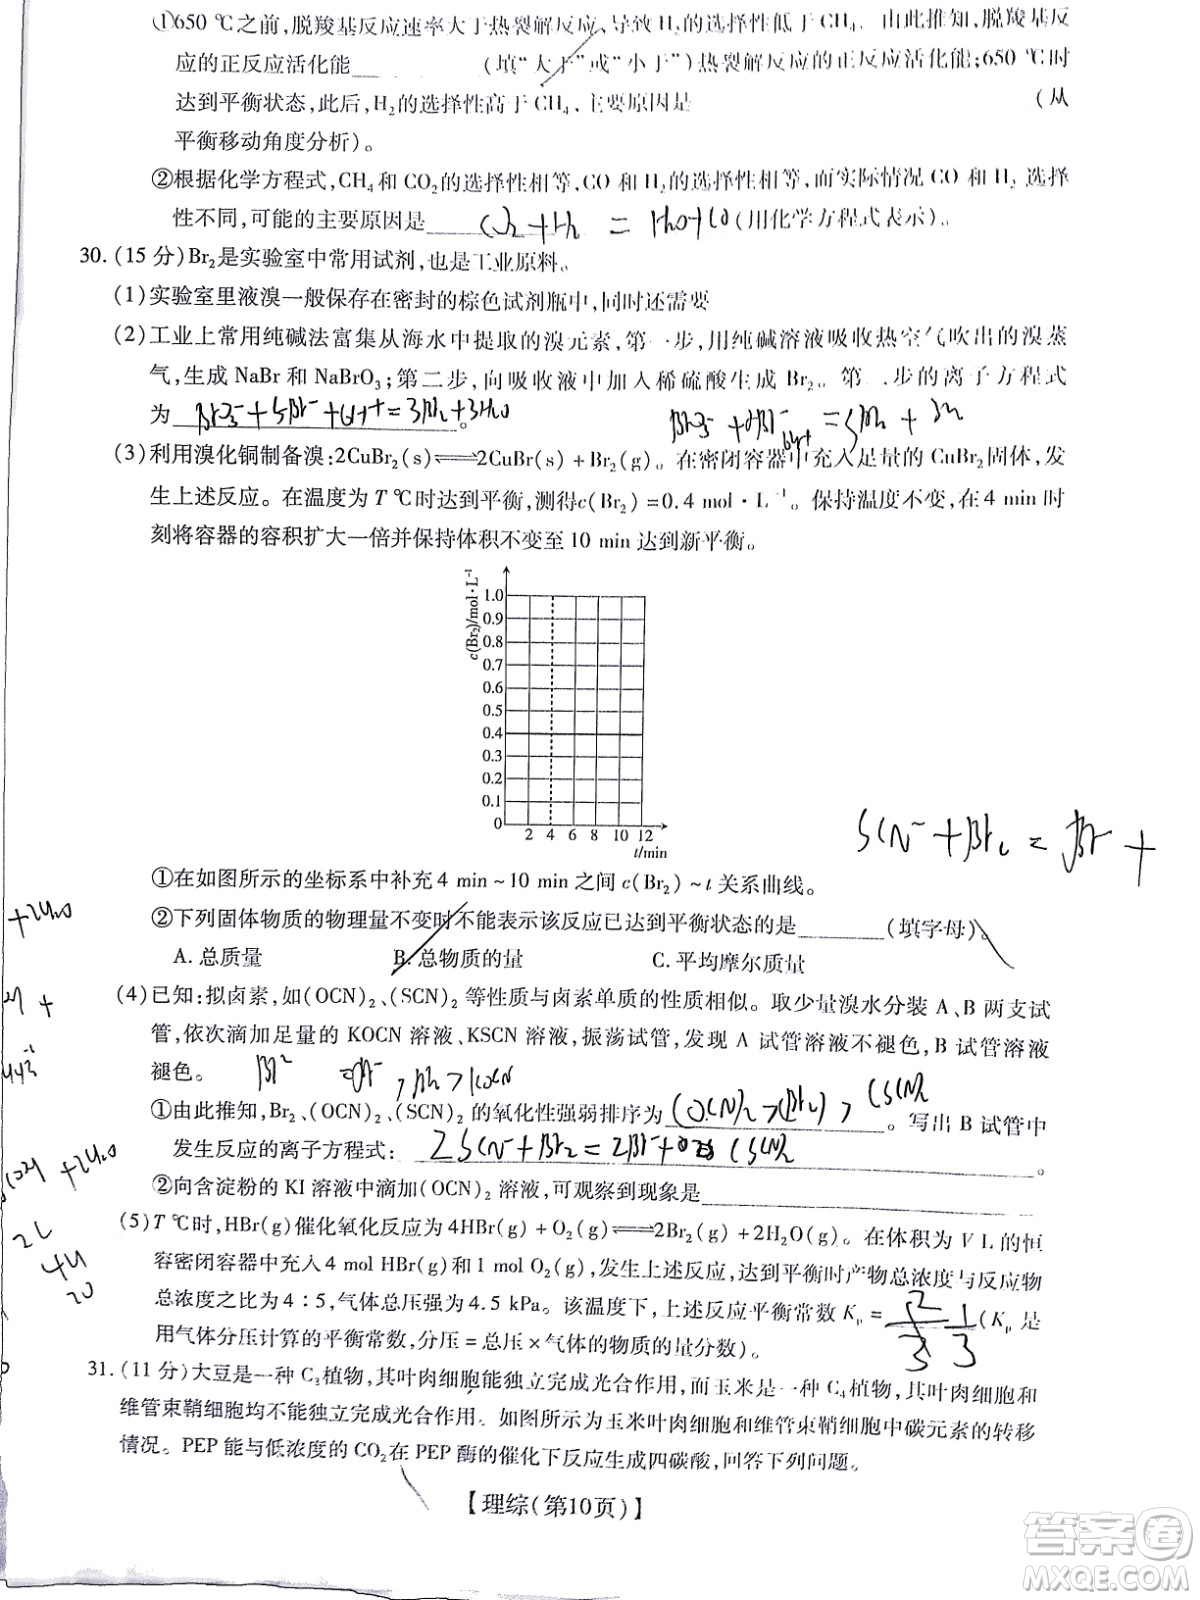 ①650 ℃之前,脱羧基反应速率大于热裂解反应,导致 H₂ 的选择性低于CH₄。由此推知,脱羧基反
应的正反应活化能 (填“大于”或“小于”)热裂解反应的正反应活化能;650 ℃时
达到平衡状态,此后,H₂的选择性高于CH₄,主要原因是 (从
平衡移动角度分析)。
②根据化学方程式,CH₄和CO₂的选择性相等,CO 和 H₂的选择性相等,而实际情况 CO 和 H₂ 选择
性不同,可能的主要原因是 CO₂+H₂ = H₂O+CO (用化学方程式表示)。
30. (15 分)Br₂是实验室中常用试剂,也是工业原料。
(1)实验室里液溴一般保存在密封的棕色试剂瓶中,同时还需要
(2)工业上常用纯碱法富集从海水中提取的溴元素,第一步,用纯碱溶液吸收热空气吹出的溴蒸
气,生成 NaBr 和 NaBrO₃;第二步,向吸收液中加入稀硫酸生成 Br₂。第二步的离子方程式
为 BrO₃⁻+5Br⁻+6H⁺=3Br₂+3H₂O 。
(3)利用溴化铜制备溴:2CuBr₂(s)⇌2CuBr(s)+Br₂(g)。在密闭容器中充入足量的CuBr₂固体,发
生上述反应。在温度为 T ℃时达到平衡,测得c(Br₂)=0.4 mol·L⁻¹。保持温度不变,在 4 min 时
刻将容器的容积扩大一倍并保持体积不变至 10 min 达到新平衡。
c(Br₂)/mol·L⁻¹
1.0
0.9
0.8
0.7
0.6
0.5
0.4
0.3
0.2
0.1
0
2 4 6 8 10 12
t/min
SCN⁻+Br₂ = Br⁻ +
①在如图所示的坐标系中补充 4 min~10 min 之间 c(Br₂)~t 关系曲线。
②下列固体物质的物理量不变时不能表示该反应已达到平衡状态的是______(填字母)。
+2H₂O
A. 总质量 B. 总物质的量 C. 平均摩尔质量
(4)已知:拟卤素,如(OCN)₂、(SCN)₂ 等性质与卤素单质的性质相似。取少量溴水分装 A、B 两支试
管,依次滴加足量的 KOCN 溶液、KSCN 溶液,振荡试管,发现 A 试管溶液不褪色,B 试管溶液
褪色。
①由此推知,Br₂、(OCN)₂、(SCN)₂ 的氧化性强弱排序为 (OCN)₂>(Br₂)> (SCN)₂ 。写出 B 试管中
发生反应的离子方程式: 2SCN⁻+Br₂=2Br⁻+ (SCN)₂ 。
②向含淀粉的 KI 溶液中滴加(OCN)₂ 溶液,可观察到现象是
(5)T ℃时,HBr(g)催化氧化反应为 4HBr(g)+O₂(g)⇌2Br₂(g)+2H₂O(g)。在体积为 V L 的恒
容密闭容器中充入 4 mol HBr(g)和 1 mol O₂(g),发生上述反应,达到平衡时产物总浓度与反应物
总浓度之比为 4∶5,气体总压强为 4.5 kPa。该温度下,上述反应平衡常数 Kₚ = (Kₚ 是
用气体分压计算的平衡常数,分压=总压×气体的物质的量分数)。
31. (11 分)大豆是一种 C₃植物,其叶肉细胞能独立完成光合作用,而玉米是一种 C₄植物,其叶肉细胞和
维管束鞘细胞均不能独立完成光合作用。如图所示为玉米叶肉细胞和维管束鞘细胞中碳元素的转移
情况。PEP 能与低浓度的 CO₂在 PEP 酶的催化下反应生成四碳酸,回答下列问题。
【理综(第10页)】
答案圈
MXQE.COM